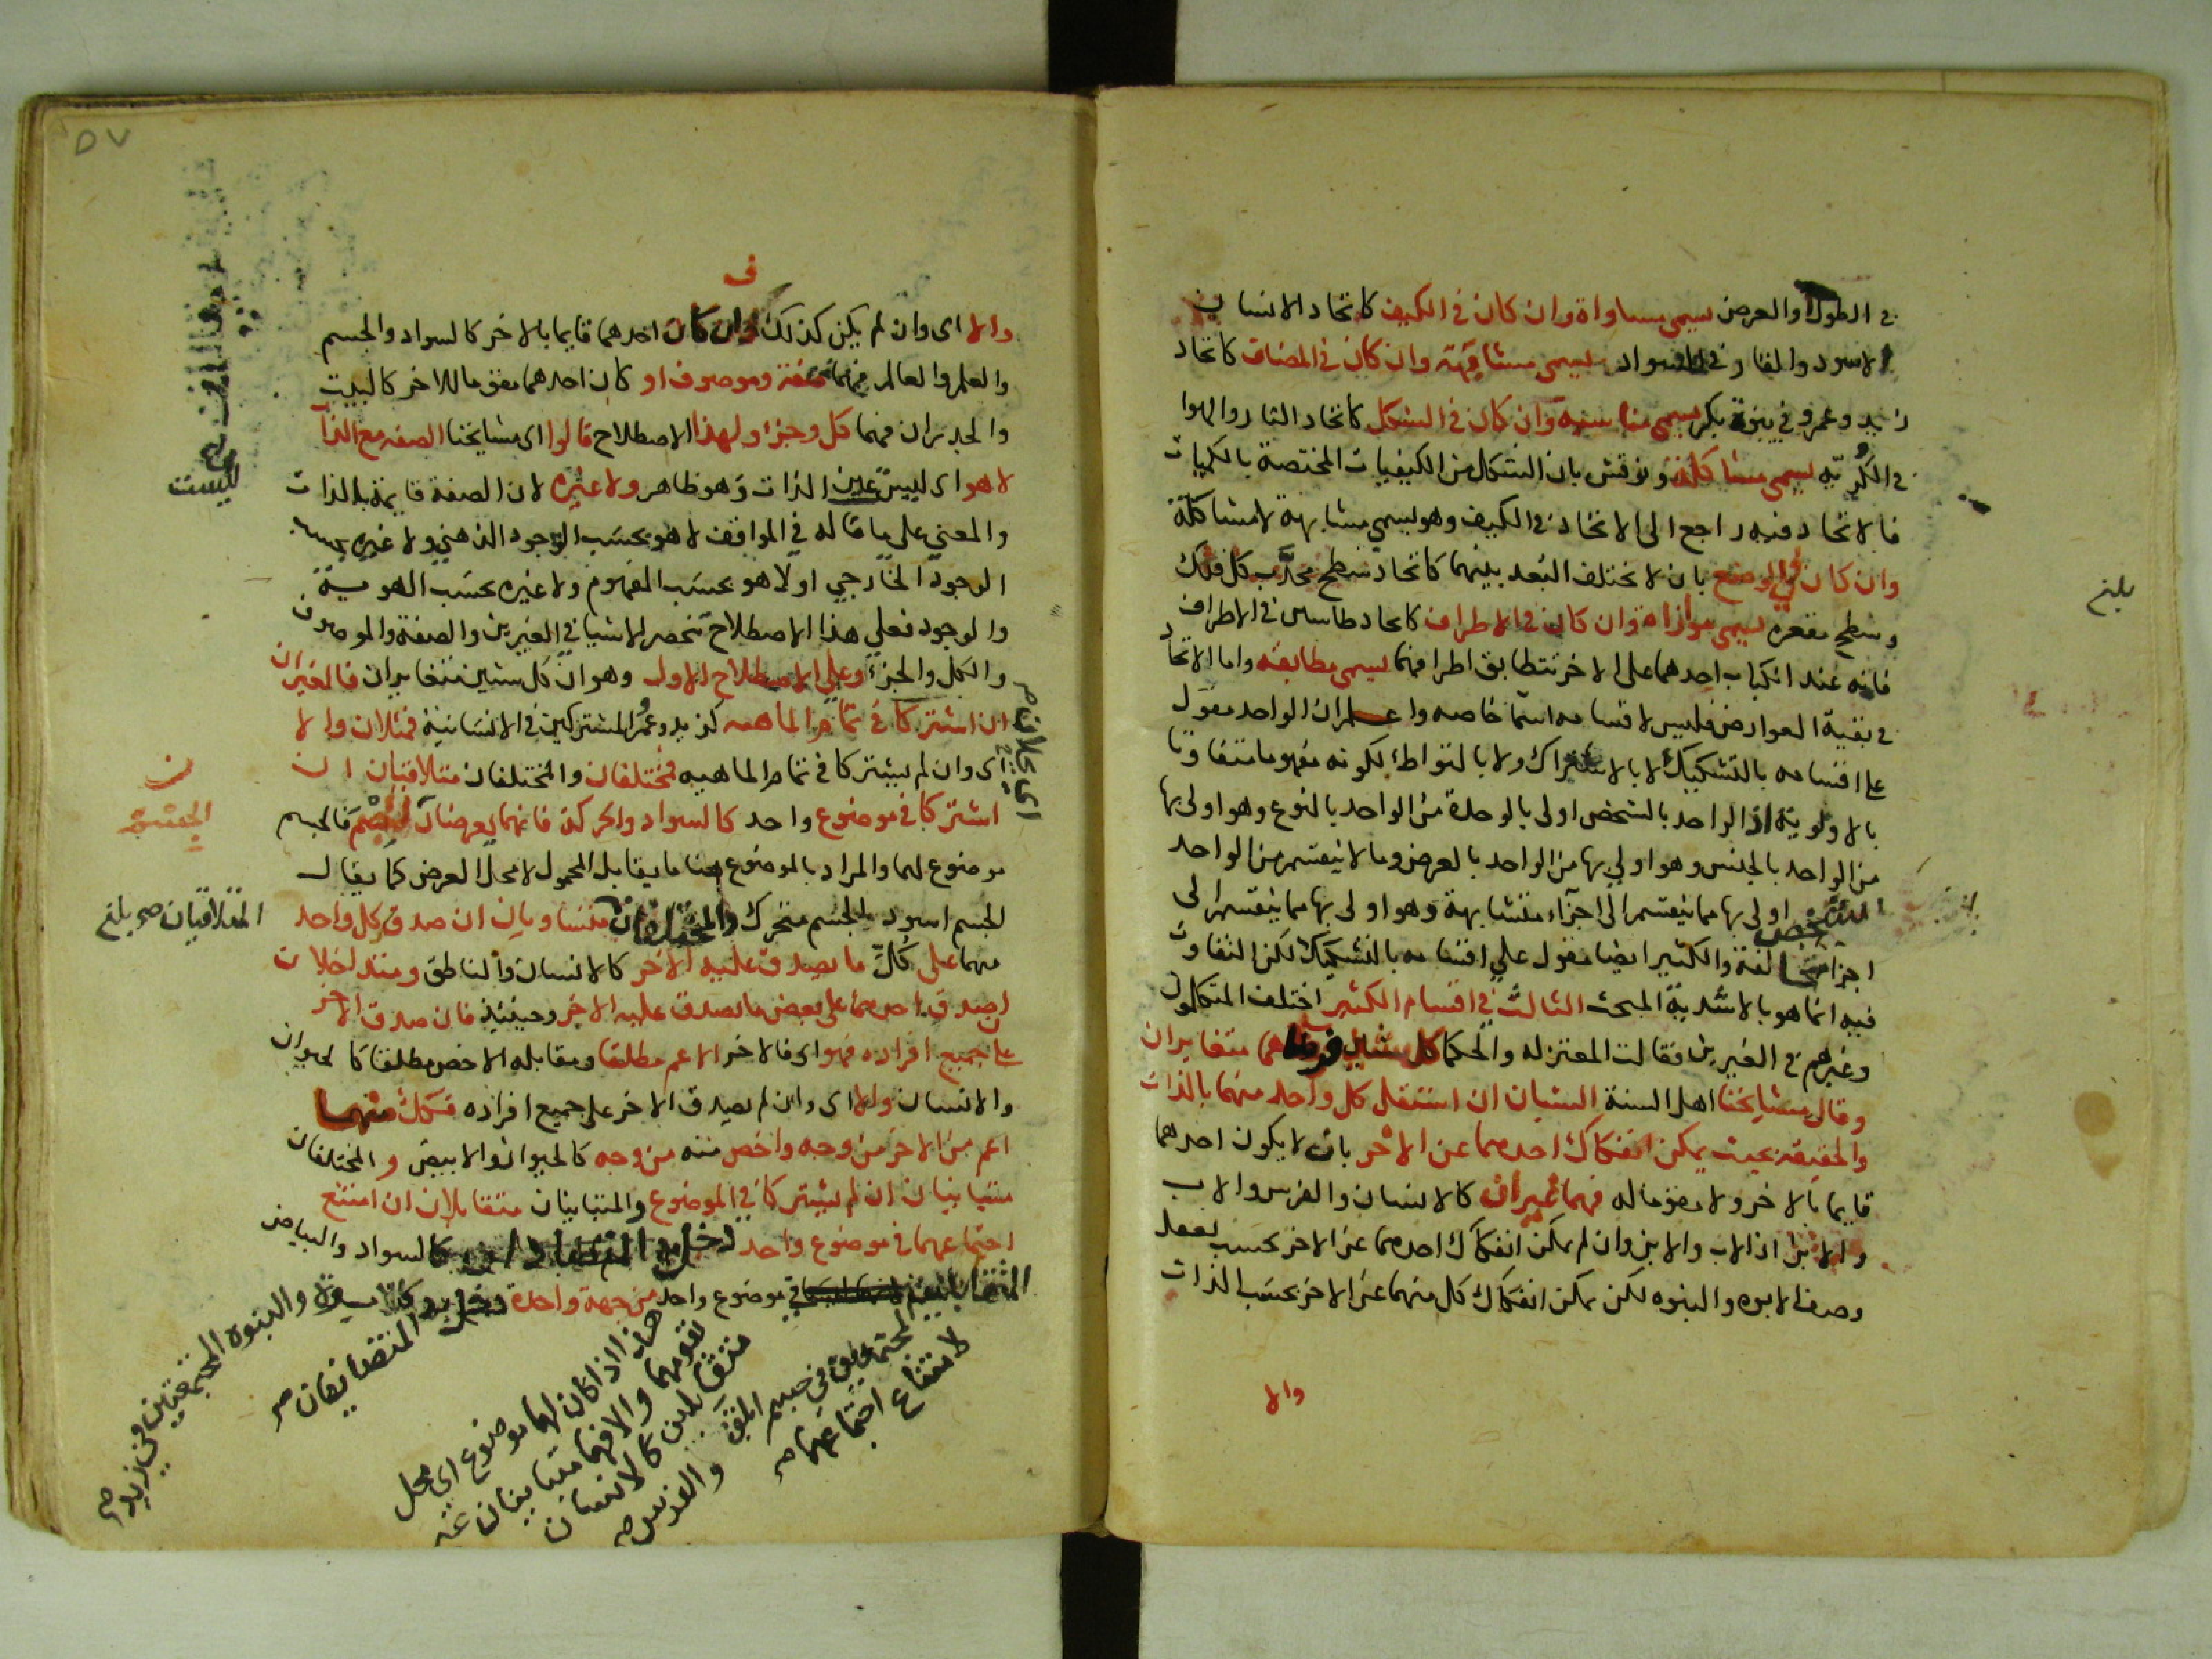 في الطول والعرض يسمى مساواة وان كان في الكيف كاتحاد الانسان
الاسود والغار في السواد يسمى مشابهة وان كان في المضاف كاتحاد
زيد وعمرو في بنوة بكر يسمى مناسبة وان كان في الشكل كاتحاد النار والهوا
في الكرية يسمى مشاكلة ونوقش بان الشكل من الكيفيات المختصة بالكميات
فالاتحاد فيه راجع الى الاتحاد في الكيف وهو يسمى مشابهة لا مشاكلة
وان كان في الوضع بان لا يختلف البعد بينهما كاتحاد سطح محدب كل فلك
وسطح مقعره يسمى موازاة وان كان في الاطراف كاتحاد طاسين في الاطراف
فانه عند انكباب احدهما على الاخر تتطابق اطرافهما يسمى مطابقة واما الاتحاد
في بقية العوارض فليس لاقسامه اسما خاصه واعلم ان الواحد مقول
على اقسامه بالتشكيك لا بالاشتراك ولا بالتواطئ لكونه مفهوما متفاوتا
بالاولوية اذ الواحد بالشخص اولى بالوحدة من الواحد بالنوع وهو اولى بها
من الواحد بالجنس وهو اولى بها من الواحد بالعرض وما لا ينقسم من الواحد
بالشخص اولى بها مما ينقسم الى اجزاء متشابهة وهو اولى بها مما ينقسم الى
اجزا متخالفة والكثير ايضا مقول على اقسامه بالتشكيك لكن التفاوت
فيه انما هو بالاشدية المبحث الثالث في اقسام الكثير اختلف المتكلمون
وغيرهم في الغيرين فقالت المعتزله والحكما كل شيئين فرضا هما متغايران
وقال مشايخنا اهل السنة الشيئان ان استقل كل واحد منهما بالذات
والحقيقة بحيث يمكن انفكاك احدهما عن الاخر بان لا يكون احدهما
قايما بالاخر ولا مقوما له فهما غيران كالانسان والفرس والاب
والابن اذ الاب والابن وان لم يمكن انفكاك احدهما عن الاخر بحسب تعقل
وصف الابوه والبنوه لكن يمكن انفكاك كل منهما عن الاخر بحسب الذات
والا
بلغ
٥٧
والا اى وان لم يكن كذلك وان كان احدهما قايما بالاخر كالسواد والجسم
والعلم والعالم فهما صفة وموصوف او كان احدهما مقوما للاخر كالبيت
والجدران فهما كل وجزء ولهذا الاصطلاح قالوا اى مشايخنا الصفه مع الذات
لا هو اى ليست عين الذات وهو ظاهر ولا غيره لان الصفة قايمة بالذات
والمعنى على ما قاله في المواقف لا هو بحسب الوجود الذهني ولا غيره بحسب
الوجود الخارجي او لا هو بحسب المفهوم ولا غيره بحسب الهوية
والوجود فعلى هذا الاصطلاح تنحصر الاشيا في الغيرين والصفة والموصوف
والكل والجزء وعلى الاصطلاح الاول وهو ان كل شيئين متغايران فالغيران
ان اشتركا في تمام الماهيه كزيد وعمرو المشتركين في الانسانية فمثلان والا
اى وان لم يشتركا في تمام الماهيه فمختلفان والمختلفان متلاقيان ان
اشتركا في موضوع واحد كالسواد والحركة فانهما يعرضان للجسم فالجسم
موضوع لهما والمراد بالموضوع هنا ما يقابل المحمول لا محل العرض كما يقال
الجسم اسود والجسم متحرك والمختلفان متساويان ان صدق كل واحد
منهما على كل ما يصدق عليه الاخر كالانسان والناطق ومتداخلان
ان صدق احدهما على بعض ما يصدق عليه الاخر وحينئذ فان صدق الاخر
على جميع افراده فهو اى فالاخر الاعم مطلقا ومقابله الاخص مطلقا كالحيوان
والانسان والا اى وان لم يصدق الاخر على جميع افراده فكل منهما
اعم من الاخر من وجه واخص منه من وجه كالحيوان والابيض والمختلفان
متباينان ان لم يشتركا في الموضوع والمتباينان متقابلان ان امتنع
اجتماعهما في موضوع واحد كالسواد والبياض
في موضوع واحد من جهة واحدة
والبنوه المجتمعتين في زيد
دخل المتضايفان صح
هذا اذا كان لهما موضوع اى محل
يقومهما والا فهما متباينان غير
متقابلين كالانسان
والفرس صح
لامتناع اجتماعهما صح
ليست
الجسم
المتلاقيان صح بلغ